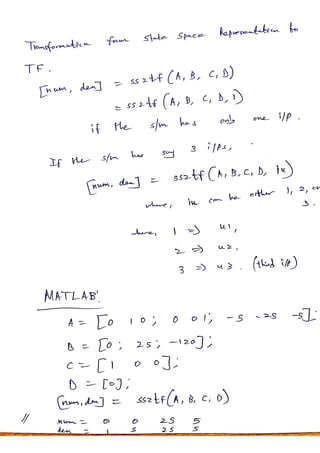 Transformation from state space Representation to
TF.
[num, den] = ss2tf (A, B, C, D)
= ss2tf (A, B, C, D, 1)
if the s/m has only one i/p.
If the s/m has say 3 i/ps,
[num, den] = ss2tf (A, B, C, D, iu)
where, iu can be either 1, 2, or
3.
where, 1 ⇒ u1,
2 ⇒ u2.
3 ⇒ u3. (third i/p)
MATLAB:
A = [0 1 0; 0 0 1; -5 -25 -5];
B = [0; 25; -120];
C = [1 0 0];
D = [0];
[num, den] = ss2tf (A, B, C, D)
// num = 0 0 25 5
den = 1 5 25 5